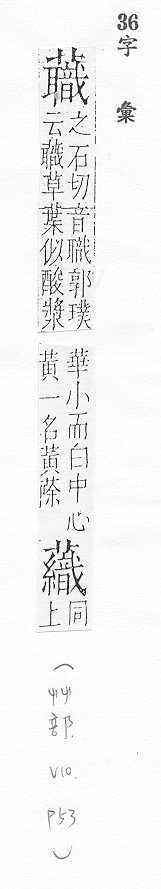 36字 彙
蘵
之石切音職郭璞
云職草葉似酸漿
華小而白中心
黃一名黃蒢
同
上
(艸部. V10. P53)